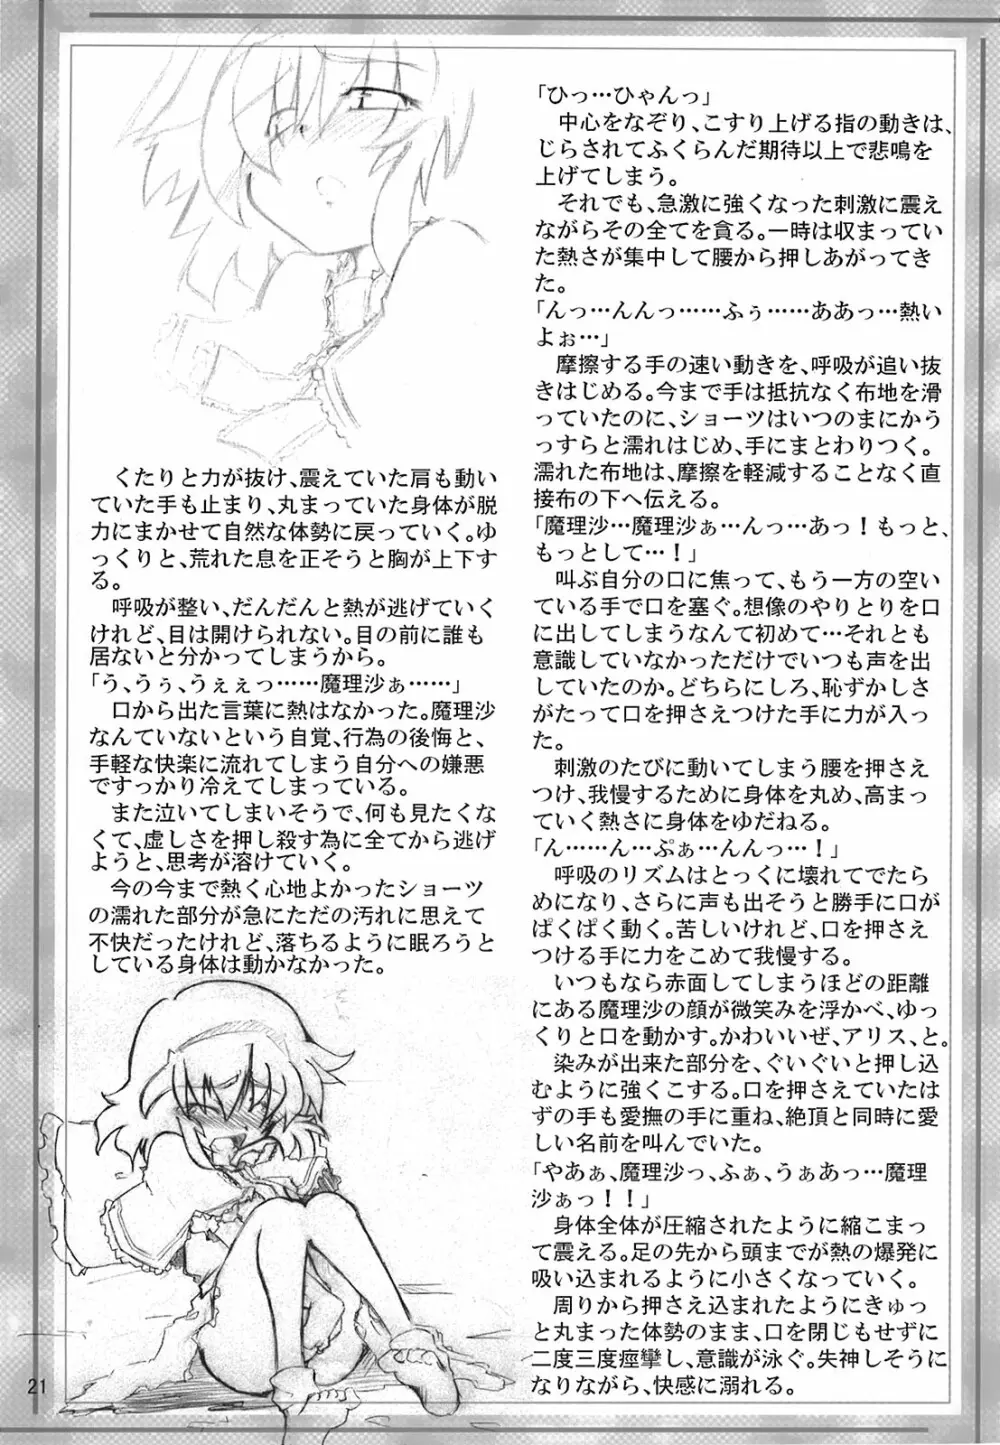 「ひっ…ひゃんっ」
中心をなぞり、こすり上げる指の動きは、
じらされてふくらんだ期待以上で悲鳴を
上げてしまう。
それでも、急激に強くなった刺激に震え
ながらその全てを貪る。一時は収まってい
た熱さが集中して腰から押しあがってき
た。
「んっ…んんっ……ふぅ……ああっ…熱い
よぉ…」
摩擦する手の速い動きを、呼吸が追い抜
きはじめる。今まで手は抵抗なく布地を滑
っていたのに、ショーツはいつのまにかう
っすらと濡れはじめ、手にまとわりつく。
濡れた布地は、摩擦を軽減することなく直
接布の下へ伝える。
「魔理沙…魔理沙ぁ…んっ…あっ！もっと、
もっとして…！」
叫ぶ自分の口に焦って、もう一方の空い
ている手で口を塞ぐ。想像のやりとりを口
に出してしまうなんて初めて…それとも
意識していなかっただけでいつも声を出
していたのか。どちらにしろ、恥ずかしさ
がたって口を押さえつけた手に力が入っ
た。
刺激のたびに動いてしまう腰を押さえ
つけ、我慢するために身体を丸め、高まっ
ていく熱さに身体をゆだねる。
「ん……ん…ぷぁ…んんっ…！」
呼吸のリズムはとっくに壊れてでたら
めになり、さらに声も出そうと勝手に口が
ぱくぱく動く。苦しいけれど、口を押さえ
つける手に力をこめて我慢する。
いつもなら赤面してしまうほどの距離
にある魔理沙の顔が微笑みを浮かべ、ゆっ
くりと口を動かす。かわいいぜ、アリス、と。
染みが出来た部分を、ぐいぐいと押し込
むように強くこする。口を押さえていたは
ずの手も愛撫の手に重ね、絶頂と同時に愛
しい名前を叫んでいた。
「やあぁ、魔理沙っ、ふぁ、うぁあっ…魔理
沙ぁっ！！」
身体全体が圧縮されたように縮こまっ
て震える。足の先から頭までが熱の爆発に
吸い込まれるように小さくなっていく。
周りから押さえ込まれたようにきゅっ
と丸まった体勢のまま、口を閉じもせずに
二度三度痙攣し、意識が泳ぐ。失神しそうに
なりながら、快感に溺れる。
くたりと力が抜け、震えていた肩も動い
ていた手も止まり、丸まっていた身体が脱
力にまかせて自然な体勢に戻っていく。ゆ
っくりと、荒れた息を正そうと胸が上下す
る。
呼吸が整い、だんだんと熱が逃げていく
けれど、目は開けられない。目の前に誰も
居ないと分かってしまうから。
「う、うぅ、うぇぇっ……魔理沙ぁ……」
口から出た言葉に熱はなかった。魔理沙
なんていないという自覚、行為の後悔と、
手軽な快楽に流れてしまう自分への嫌悪
ですっかり冷えてしまっている。
また泣いてしまいそうで、何も見たくな
くて、虚しさを押し殺す為に全てから逃げ
ようと、思考が溶けていく。
今の今まで熱く心地よかったショーツ
の濡れた部分が急にただの汚れに思えて
不快だったけれど、落ちるように眠ろうと
している身体は動かなかった。
21